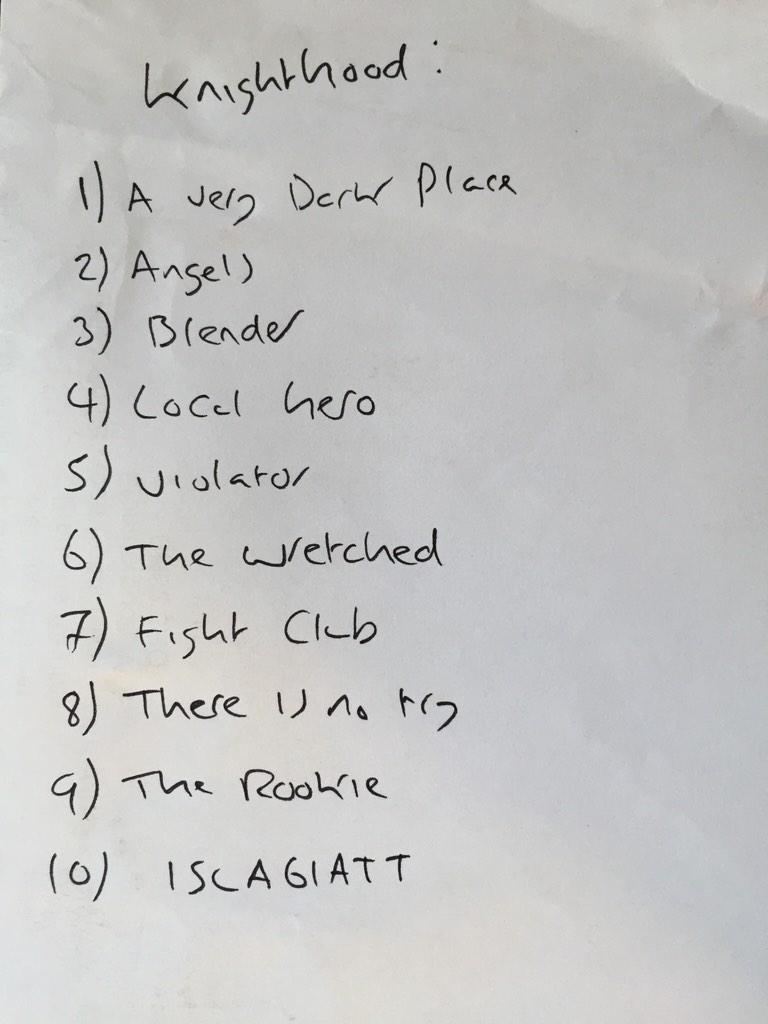 Knighthood:
1) A very Dark Place
2) Angels
3) Blender
4) Local hero
5) Violator
6) The Wretched
7) Fight Club
8) There is no try
9) The Rookie
10) ISCAGIATT